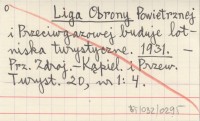 0
Liga Obrony Powietrznej
i Przeciwgazowej buduje lot-
niska turystyczne. 1931. –
Prz. Zdroj.-Kąpiel. i Przew.
Turyst. 20, nr 1: 4.